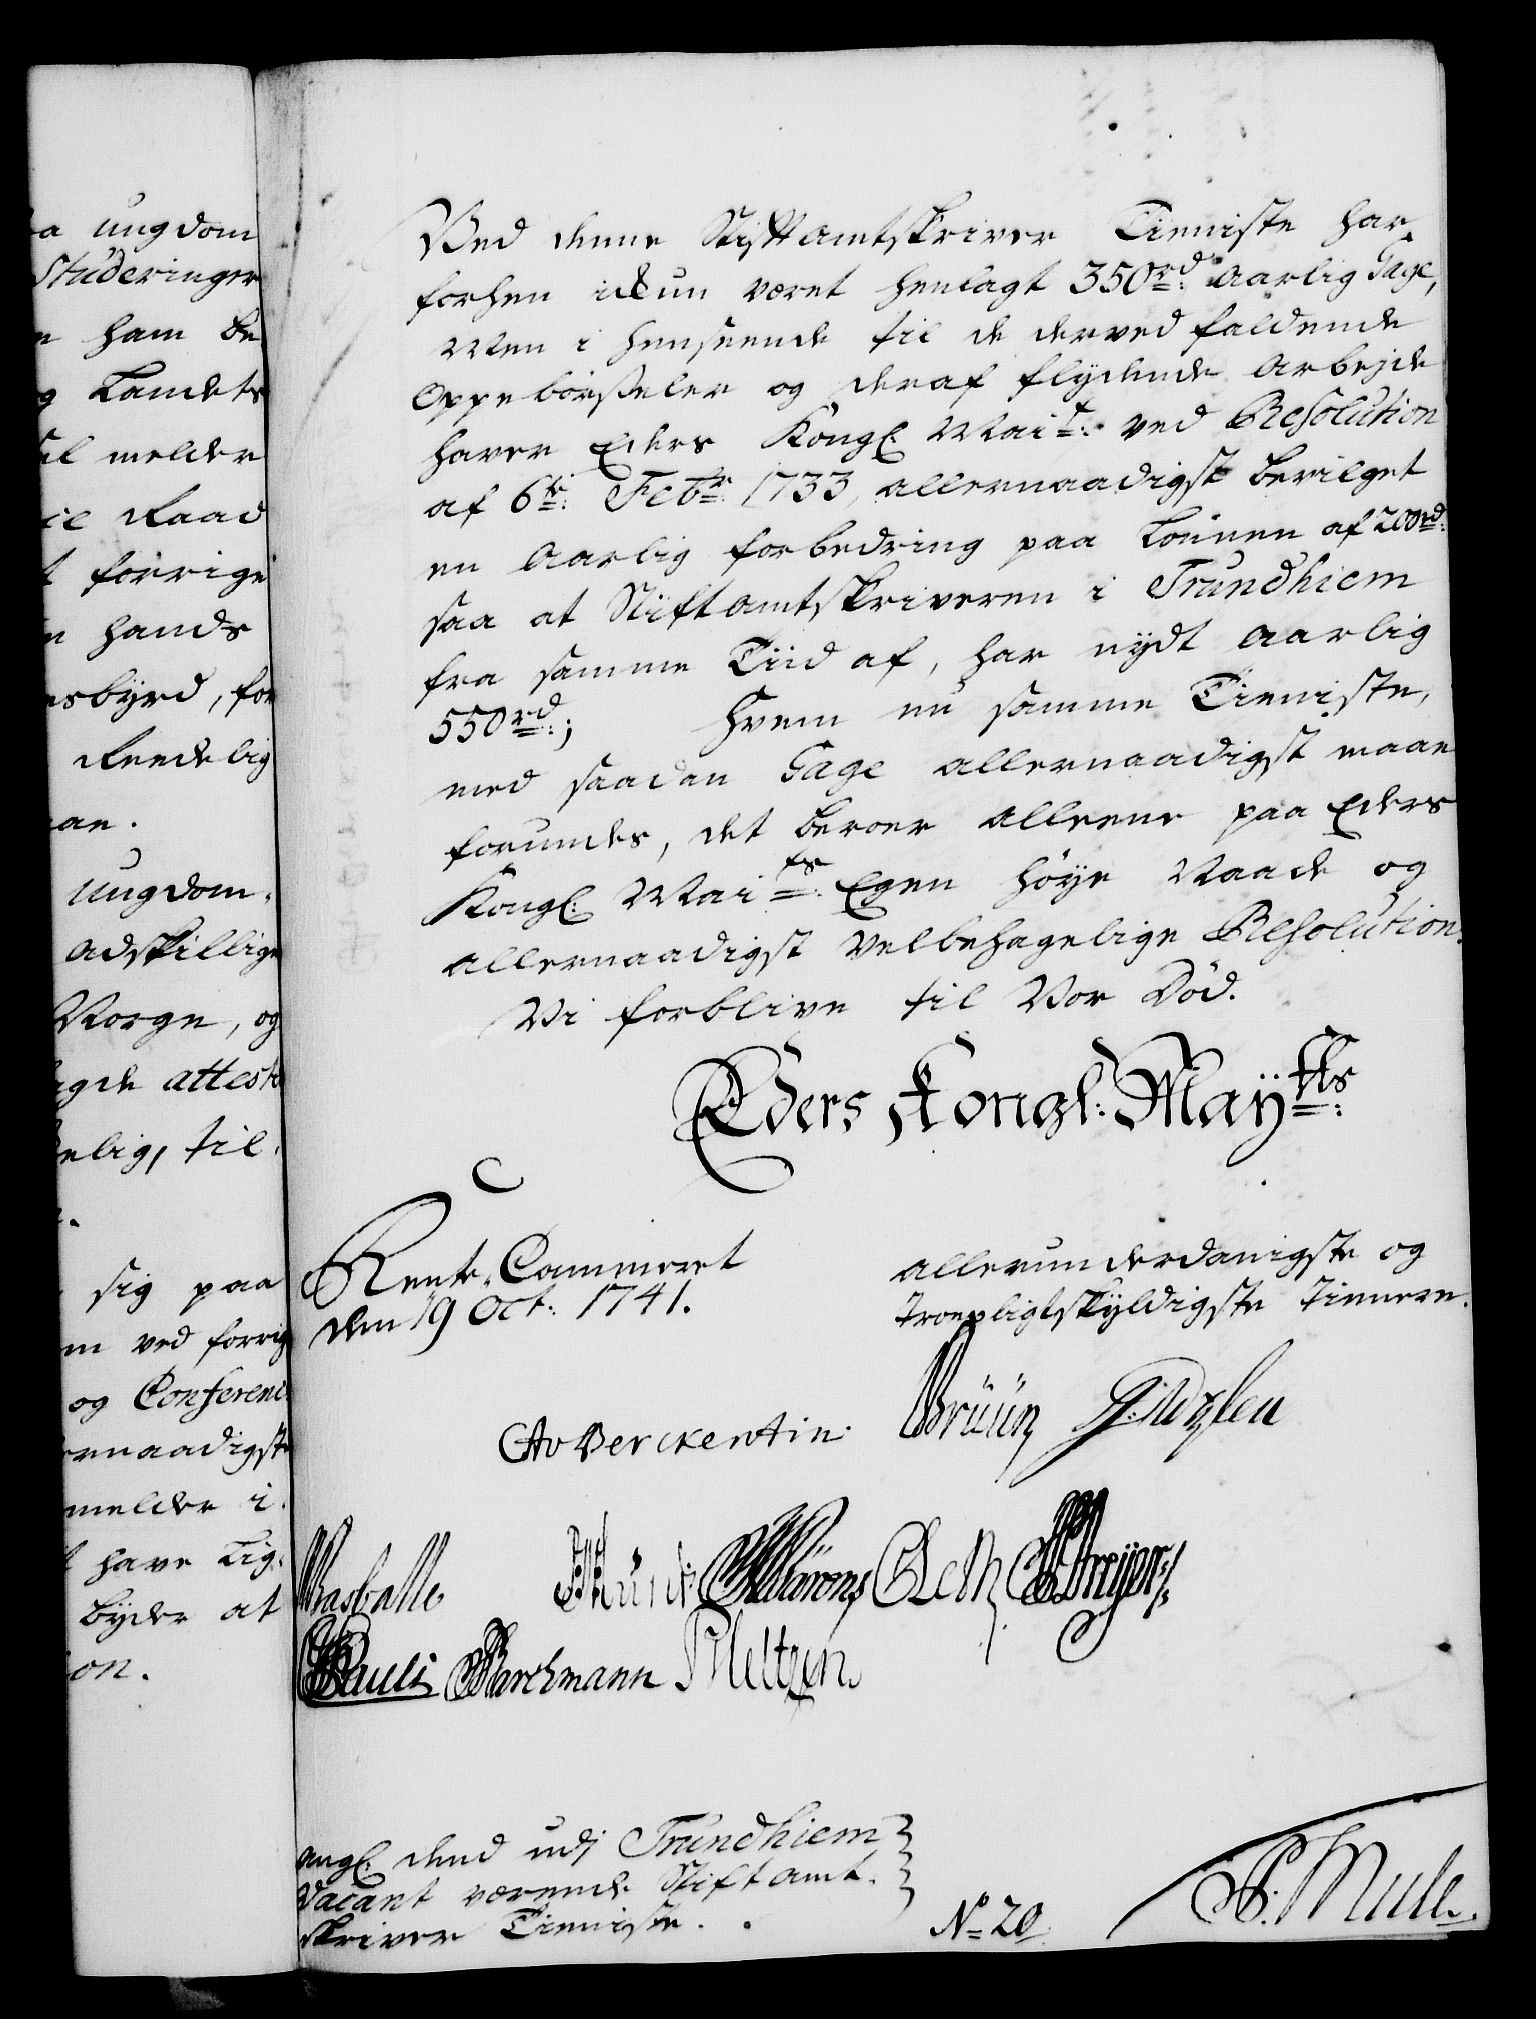 a ungdom
Studeringer
ham be
g Landets
al melder
ie Raad
t forrige
n hands
esbyrd, for
Reedelig
an.
ungdom,
adskillige
Norge, og
attest
elig, til
sig paa
m ved forrig
og Conferenc
ernaadigste
melder i
t have Lig:
byder at
on.
Ved denne Stiftamtskriver Tieniste har
forhen ickun været henlagt 350 rd: aarlig Gage,
Men i henseende til de derved faldende
Oppebørseler og deraf flydende arbejde
haver Eders Kongl: Mai.t: ved Resolution
af 6te: Febr: 1733, allernaadigst bevilget
en aarlig forbedring paa Lønnen af 200 rd:
saa at Stiftamtskriveren i Trundhiem
fra samme Tiid af, har nydt aarlig
550 rd:; Hvem nu samme Tieniste,
med saadan Gage allernaadigst maae
forundes, det beroer alleene paa Eders
Kongl: Mai.ts: Egen høye Naade og
allernaadigst velbehagelige Resolution.
Vi forblive til Vor Död.
Eders Kongl: Maytts:
Rente-Cammeret
den 19 Oct: 1741.
allerunderdanigste og
troepligtskyldigste tienere.
CAv Berckentin. Brüün
Basballe Munch CKellinghusen
Pauli Barchmann Meltzen
angl: dend udj Trundhiem
vacant værende Stiftamt-
skriver Tieniste.
No 20
P: Mule.